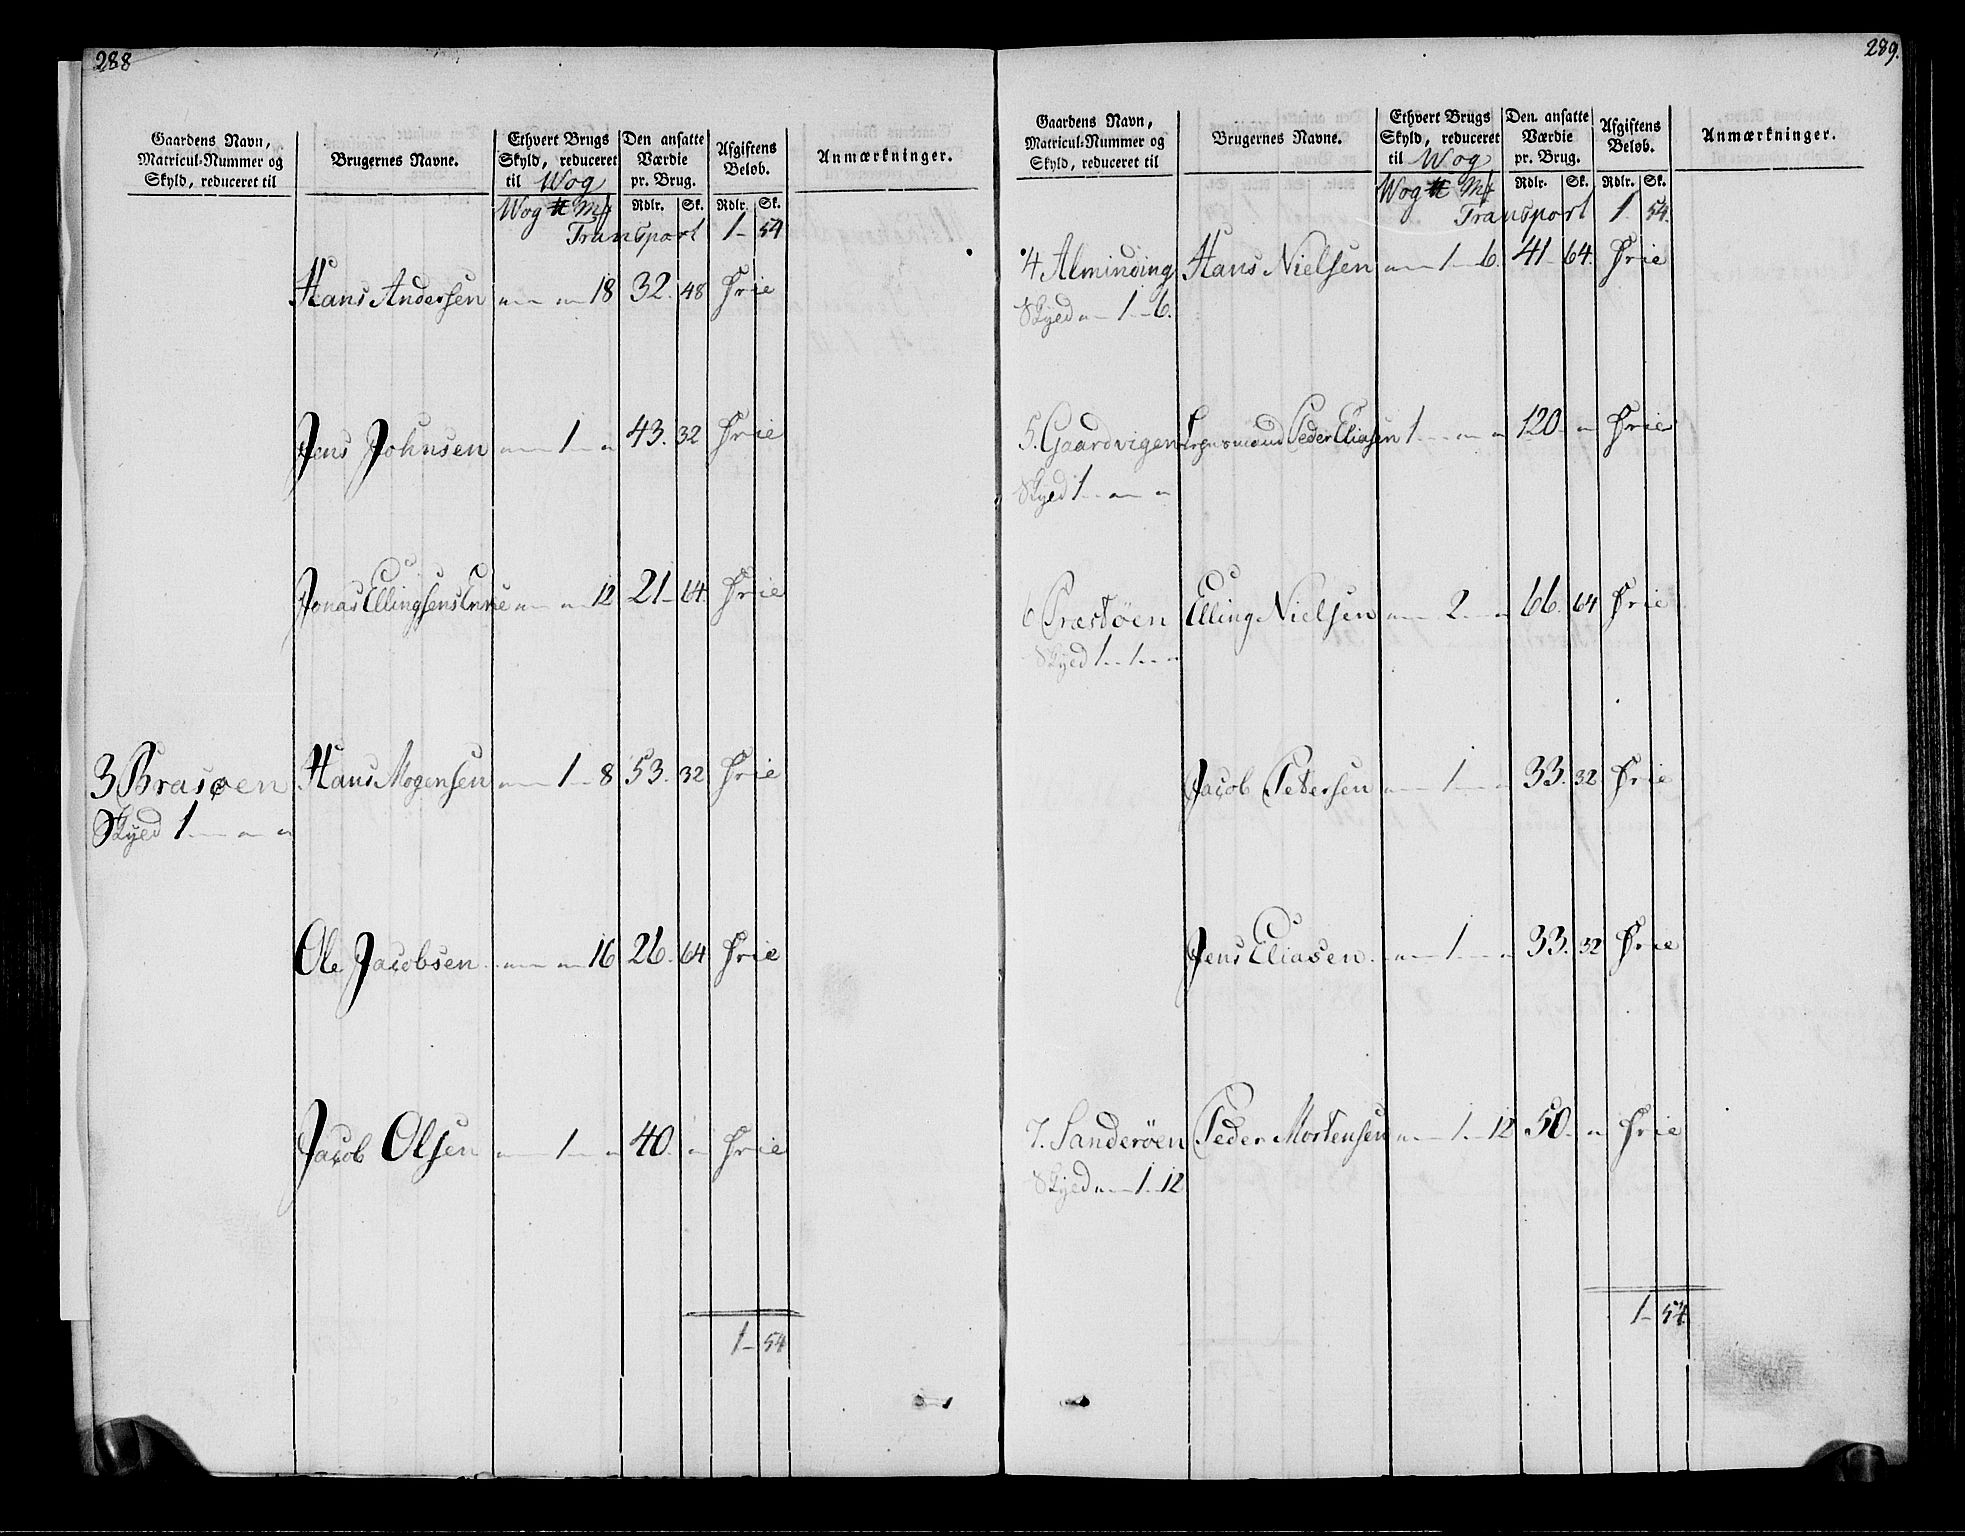 288
Gaardens Navn, Matricul-Nummer og Skyld, reduceret til
Brugernes Navne.
Ethvert Brugs Skyld, reduceret til Wog
Den ansatte Værdie pr. Brug.
Afgiftens Beløb.
Anmærkninger.
Wog ℔ Mk Rdlr. Sk. Rdlr. Sk.
Transport 1 54
Hans Andersen " " 18 32 48 Frie
Jens Johnsen " 1 " 43. 32 Frie
Jonas Ellingsens Enke " " 12 21 64. Frie
3 Brasøen Hans Mogensen " 1 8 53. 32 Frie
Skyld 1 " "
Ole Jacobsen " " 16 26. 64 Frie
Jacob Olsen " 1 " 40. " Frie
1 54
289.
Gaardens Navn, Matricul-Nummer og Skyld, reduceret til
Brugernes Navne.
Ethvert Brugs Skyld, reduceret til Wog
Den ansatte Værdie pr. Brug.
Afgiftens Beløb.
Anmærkninger.
Wog ℔ Mk Rdlr. Sk. Rdlr. Sk.
Transport 1 54.
4 Alminding Hans Nielsen " 1 6. 41 64. Frie
Skyld " 1 6.
5. Gaardvigen Peder Eliasen 1 " " 120 " Frie
Skyld 1 " "
6 Præstøen Elling Nielsen " 2 " 66. 64 Frie
Skyld 1 1 "
Jacob Petersen " 1 " 33. 32 Frie
Jens Eliasen " 1 " 33. 32 Frie
7. Sanderøen Peder Mortensen " 1 12 50. " Frie
Skyld " 1 12
1 54.